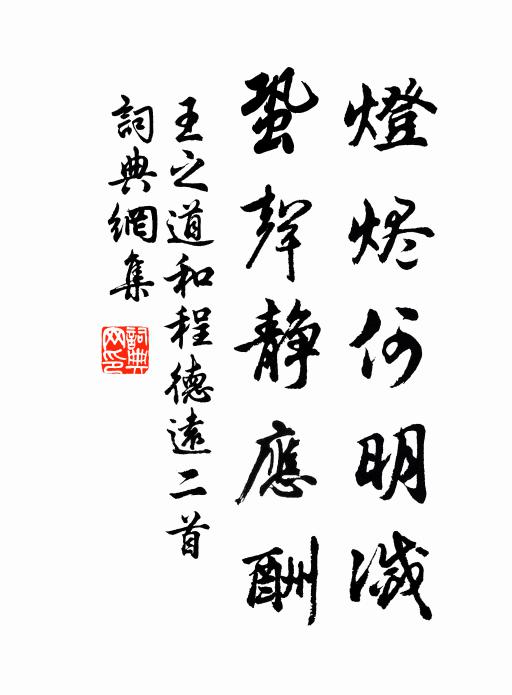 燈烬何明滅
蛩聲静應酬
王之道和程德遠二首
詞典網集
詞典网印